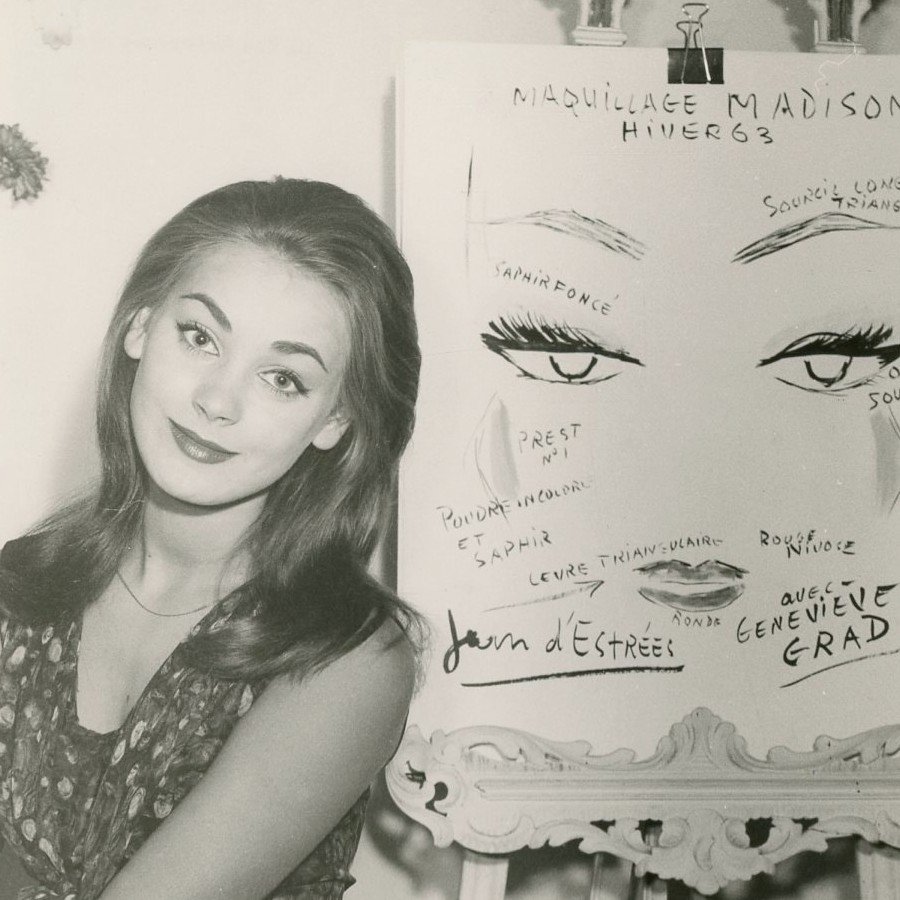 MAQUILLAGE MADISON
HIVER 63
SOURCIL LONG
TRIANG
SAPHIR FONCÉ
SOU
PREST
N°1
POUDRE INCOLORE
ET
SAPHIR
LEVRE TRIANGULAIRE
ROUGE
NIVOSE
RONDE
AVEC
GENEVIEVE
GRAD
Jean d'ESTRÉES